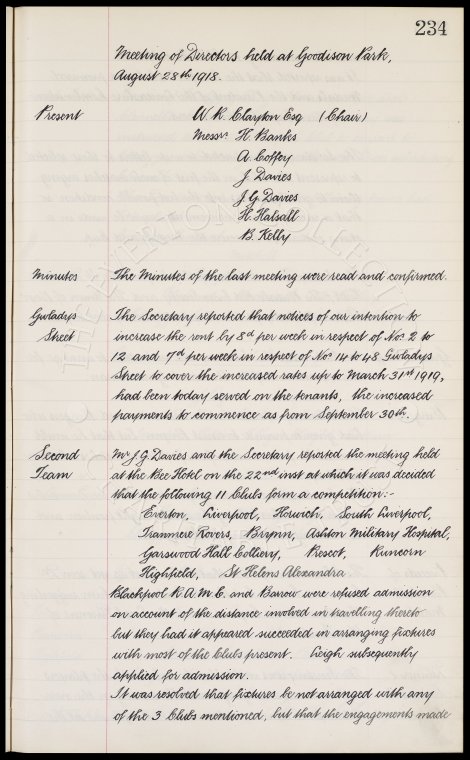 234
Meeting of Directors held at Goodison Park,
August 28th 1918.
Present W. R. Clayton Esq (Chair)
Messrs. H. Banks
A. Coffey
J. Davies
J. G. Davies
H. Halsall
B. Kelly
Minutes The Minutes of the last meeting were read and confirmed.
Gwladys The Secretary reported that notices of our intention to
Street increase the rent by 8d per week in respect of Nos. 2 to
12 and 7d per week in respect of Nos 14 to 48 Gwladys
Street to cover the increased rates up to March 31st 1919,
had been today served on the tenants, the increased
payments to commence as from September 30th.
Second Mr J. G. Davies and the Secretary reported the meeting held
Team at the Bee Hotel on the 22nd inst at which it was decided
that the following 11 Clubs form a competition:-
Everton, Liverpool, Horwich, South Liverpool,
Tranmere Rovers, Brynn, Ashton Military Hospital,
Garswood Hall Colliery, Prescot, Runcorn
Highfield, St Helens Alexandra
Blackpool R A M C. and Barow were refused admission
on account of the distance involved in travelling thereto
but they had it appeared succeeded in arranging fixtures
with most of the Clubs present. Leigh subsequently
applied for admission.
It was resolved that fixtures be not arranged with any
of the 3 Clubs mentioned, but that the engagements made
THE EVERTON COLLECTION